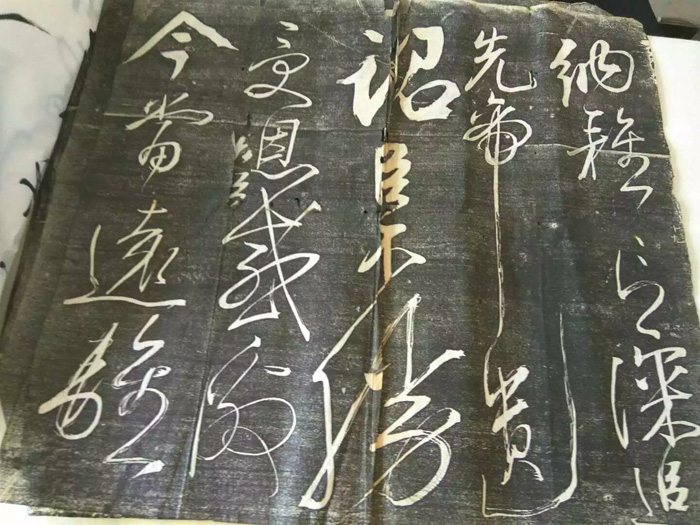 納雅言深追
先帝遺
詔臣不勝
受恩感激
今當遠離